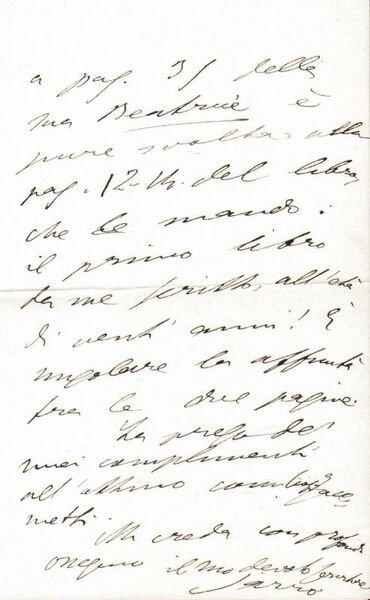 a pag. 35 della
sua Beatrice è
pure svolta alla
pag. 12-14. del libro,
che le mando:
il primo libro
da me scritto, all'età
di venti anni! È
singolare la affinità
fra le due pagine.
La prego de'
miei complimenti
all'ottimo
Mi creda con profondo
ossequio il suo devoto servitore
Jarro